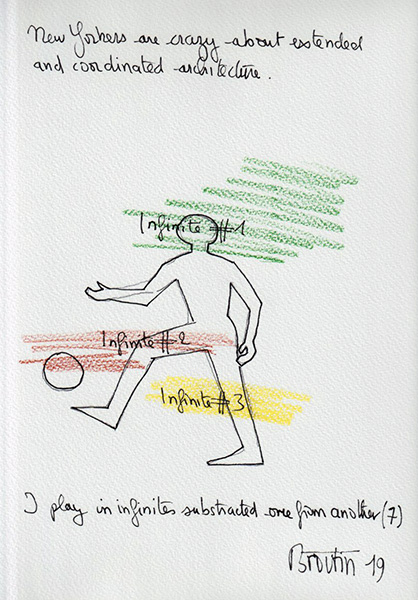 New Yorkers are crazy about extended
and coordinated architecture.
Infinite #1
Infinite #2
Infinite #3
I play in infinites substracted one from another (7)
Broutin 19